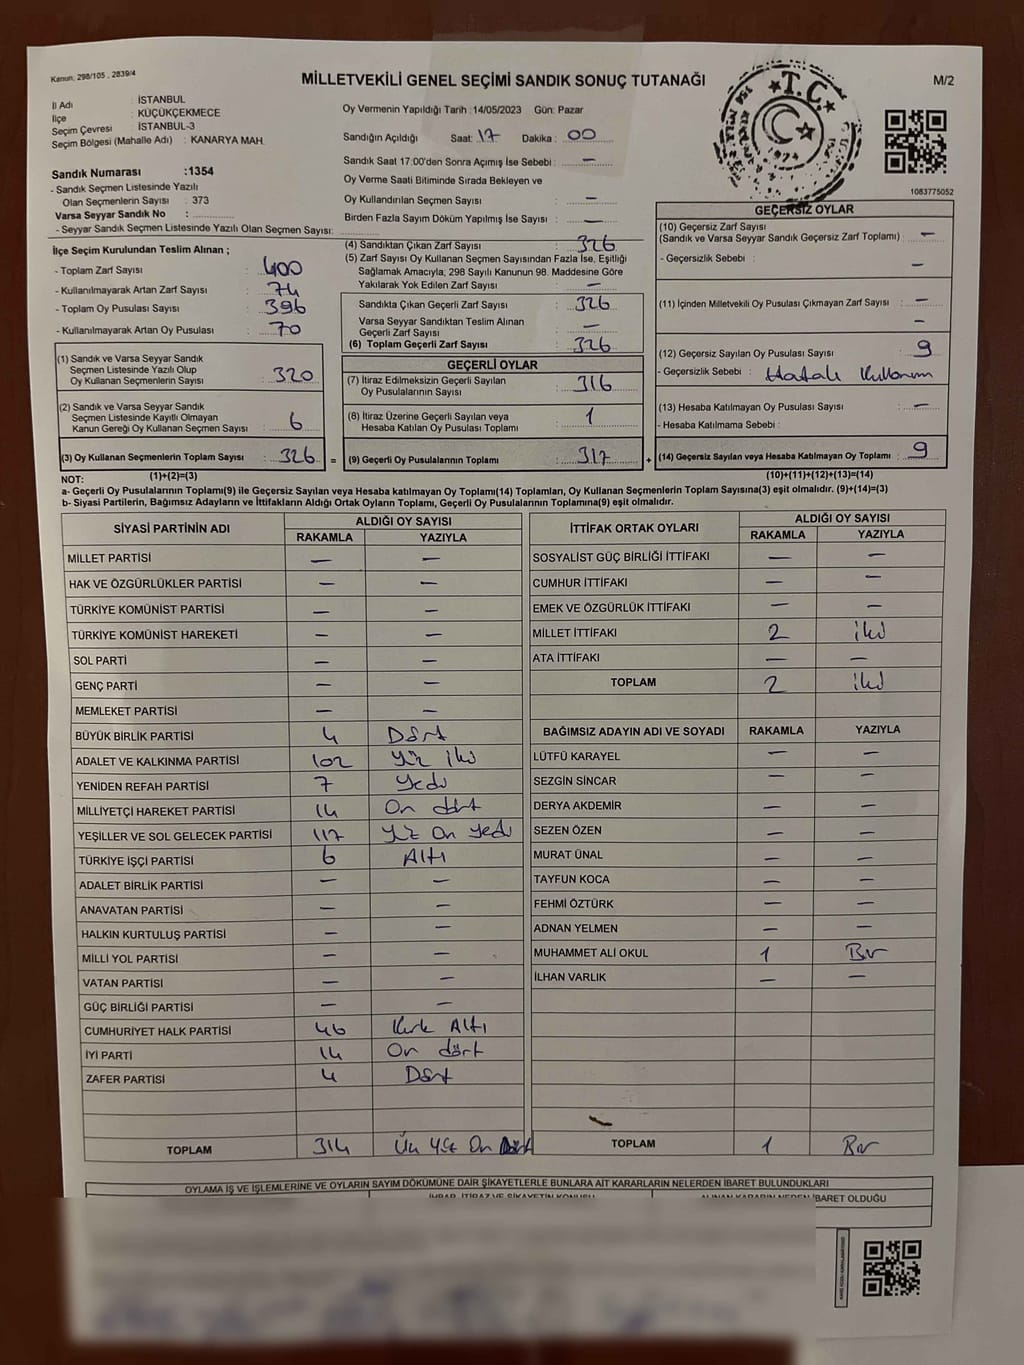 Kanun: 298/105 , 2839/4
MİLLETVEKİLİ GENEL SEÇİMİ SANDIK SONUÇ TUTANAĞI
M/2
İl Adı : İSTANBUL
İlçe : KÜÇÜKÇEKMECE
Seçim Çevresi : İSTANBUL-3
Seçim Bölgesi (Mahalle Adı) : KANARYA MAH.
Sandık Numarası :1354
- Sandık Seçmen Listesinde Yazılı
Olan Seçmenlerin Sayısı : 373
Varsa Seyyar Sandık No :
- Seyyar Sandık Seçmen Listesinde Yazılı Olan Seçmen Sayısı:
Oy Vermenin Yapıldığı Tarih :14/05/2023 Gün: Pazar
Sandığın Açıldığı Saat: 17 Dakika : 00
Sandık Saat 17:00'den Sonra Açılmış İse Sebebi : —
Oy Verme Saati Bitiminde Sırada Bekleyen ve
Oy Kullandırılan Seçmen Sayısı : —
Birden Fazla Sayım Döküm Yapılmış İse Sayısı : —
T.C.
1083775052
İlçe Seçim Kurulundan Teslim Alınan ;
- Toplam Zarf Sayısı : 400
- Kullanılmayarak Artan Zarf Sayısı : 74
- Toplam Oy Pusulası Sayısı : 396
- Kullanılmayarak Artan Oy Pusulası : 70
(1) Sandık ve Varsa Seyyar Sandık
Seçmen Listesinde Yazılı Olup
Oy Kullanan Seçmenlerin Sayısı : 320
(2) Sandık ve Varsa Seyyar Sandık
Seçmen Listesinde Kayıtlı Olmayan
Kanun Gereği Oy Kullanan Seçmen Sayısı : 6
(3) Oy Kullanan Seçmenlerin Toplam Sayısı : 326 =
(4) Sandıktan Çıkan Zarf Sayısı : 326
(5) Zarf Sayısı Oy Kullanan Seçmen Sayısından Fazla İse, Eşitliği
Sağlamak Amacıyla; 298 Sayılı Kanunun 98. Maddesine Göre
Yakılarak Yok Edilen Zarf Sayısı : —
Sandıkta Çıkan Geçerli Zarf Sayısı : 326
Varsa Seyyar Sandıktan Teslim Alınan
Geçerli Zarf Sayısı : —
(6) Toplam Geçerli Zarf Sayısı : 326
GEÇERLİ OYLAR
(7) İtiraz Edilmeksizin Geçerli Sayılan
Oy Pusulalarının Sayısı : 316
(8) İtiraz Üzerine Geçerli Sayılan veya
Hesaba Katılan Oy Pusulası Toplamı : 1
(9) Geçerli Oy Pusulalarının Toplamı : 317 +
GEÇERSİZ OYLAR
(10) Geçersiz Zarf Sayısı
(Sandık ve Varsa Seyyar Sandık Geçersiz Zarf Toplamı) : —
- Geçersizlik Sebebi : —
(11) İçinden Milletvekili Oy Pusulası Çıkmayan Zarf Sayısı : —
—
(12) Geçersiz Sayılan Oy Pusulası Sayısı : 9
- Geçersizlik Sebebi : Hatalı Kullanım
(13) Hesaba Katılmayan Oy Pusulası Sayısı : —
- Hesaba Katılmama Sebebi :
(14) Geçersiz Sayılan veya Hesaba Katılmayan Oy Toplamı : 9
NOT: (1)+(2)=(3) (10)+(11)+(12)+(13)=(14)
a- Geçerli Oy Pusulalarının Toplamı(9) ile Geçersiz Sayılan veya Hesaba katılmayan Oy Toplamı(14) Toplamları, Oy Kullanan Seçmenlerin Toplam Sayısına(3) eşit olmalıdır. (9)+(14)=(3)
b- Siyasi Partilerin, Bağımsız Adayların ve İttifakların Aldığı Ortak Oyların Toplamı, Geçerli Oy Pusulalarının Toplamına(9) eşit olmalıdır.
SİYASİ PARTİNİN ADI ALDIĞI OY SAYISI
RAKAMLA YAZIYLA
MİLLET PARTİSİ — —
HAK VE ÖZGÜRLÜKLER PARTİSİ — —
TÜRKİYE KOMÜNİST PARTİSİ — —
TÜRKİYE KOMÜNİST HAREKETİ — —
SOL PARTİ — —
GENÇ PARTİ — —
MEMLEKET PARTİSİ — —
BÜYÜK BİRLİK PARTİSİ 4 Dört
ADALET VE KALKINMA PARTİSİ 102 Yüz iki
YENİDEN REFAH PARTİSİ 7 Yedi
MİLLİYETÇİ HAREKET PARTİSİ 14 On dört
YEŞİLLER VE SOL GELECEK PARTİSİ 117 Yüz On yedi
TÜRKİYE İŞÇİ PARTİSİ 6 Altı
ADALET BİRLİK PARTİSİ — —
ANAVATAN PARTİSİ — —
HALKIN KURTULUŞ PARTİSİ — —
MİLLİ YOL PARTİSİ — —
VATAN PARTİSİ — —
GÜÇ BİRLİĞİ PARTİSİ — —
CUMHURİYET HALK PARTİSİ 46 Kırk Altı
İYİ PARTİ 14 On dört
ZAFER PARTİSİ 4 Dört
TOPLAM 314 Üç Yüz On Dört
İTTİFAK ORTAK OYLARI ALDIĞI OY SAYISI
RAKAMLA YAZIYLA
SOSYALİST GÜÇ BİRLİĞİ İTTİFAKI — —
CUMHUR İTTİFAKI — —
EMEK VE ÖZGÜRLÜK İTTİFAKI — —
MİLLET İTTİFAKI 2 iki
ATA İTTİFAKI — —
TOPLAM 2 iki
BAĞIMSIZ ADAYIN ADI VE SOYADI RAKAMLA YAZIYLA
LÜTFÜ KARAYEL — —
SEZGİN SİNCAR — —
DERYA AKDEMİR — —
SEZEN ÖZEN — —
MURAT ÜNAL — —
TAYFUN KOCA — —
FEHMİ ÖZTÜRK — —
ADNAN YELMEN — —
MUHAMMET ALİ OKUL 1 Bir
İLHAN VARLIK — —
TOPLAM 1 Bir
OYLAMA İŞ VE İŞLEMLERİNE VE OYLARIN SAYIM DÖKÜMÜNE DAİR ŞİKAYETLERLE BUNLARA AİT KARARLARIN NELERDEN İBARET BULUNDUKLARI
İHBAR, İTİRAZ VE ŞİKAYETİN KONUSU ALINAN KARARIN NEDEN İBARET OLDUĞU